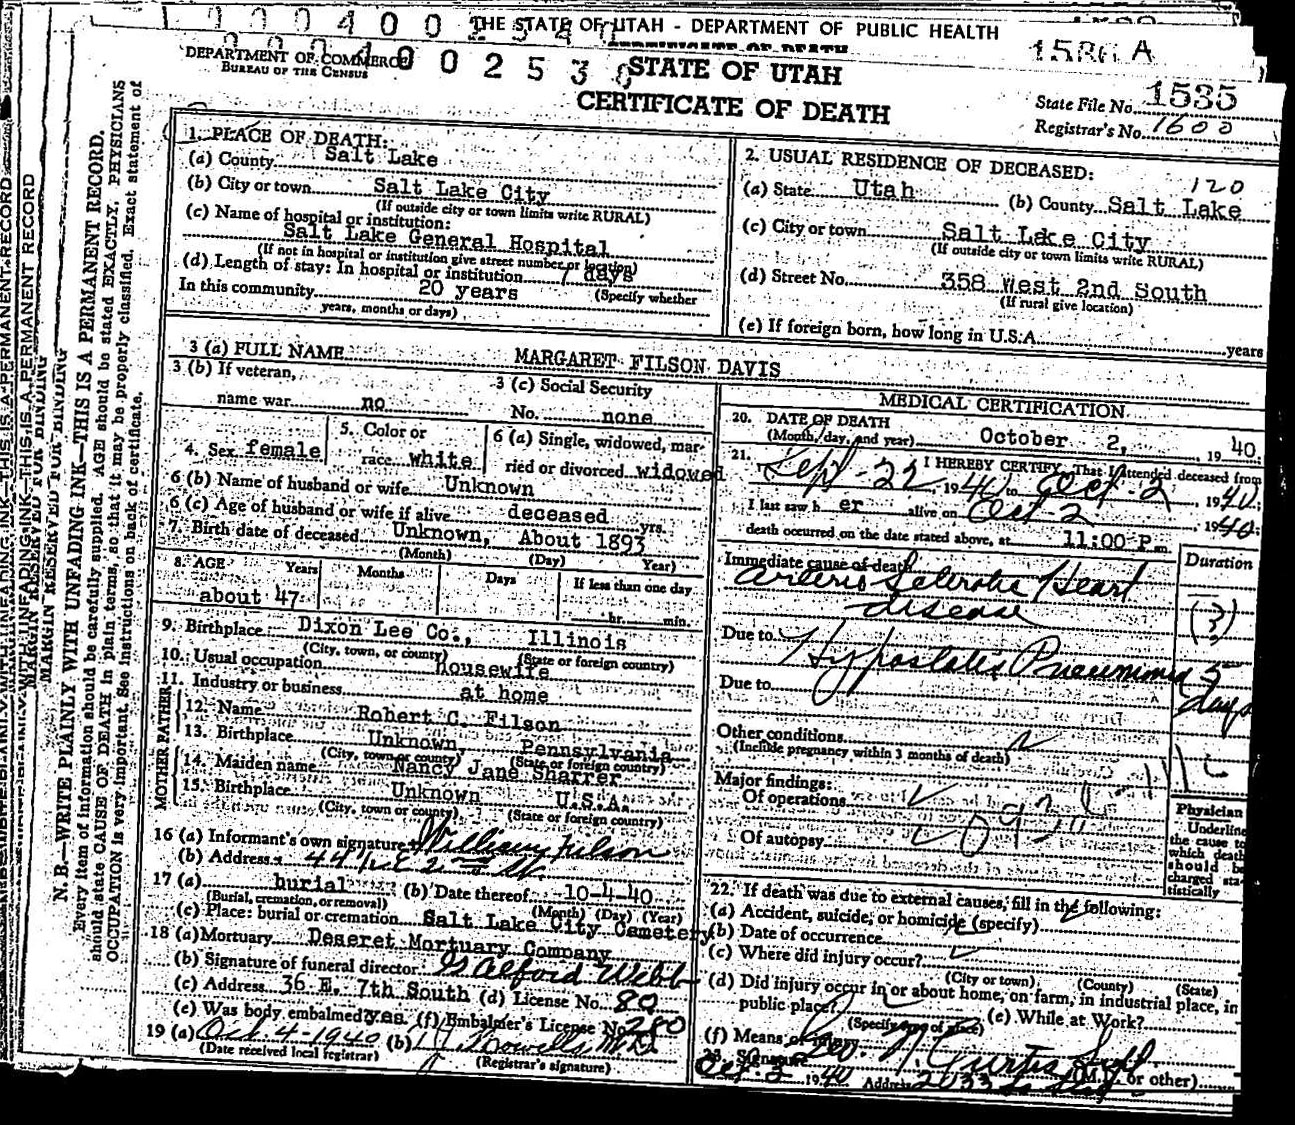 THE STATE OF UTAH - DEPARTMENT OF PUBLIC HEALTH
CERTIFICATE OF DEATH
1586 A
DEPARTMENT OF COMMERCE
BUREAU OF THE CENSUS
STATE OF UTAH
CERTIFICATE OF DEATH
State File No. 1535
Registrar's No. 1600
MARGIN RESERVED FOR BINDING
N. B.—WRITE PLAINLY WITH UNFADING INK—THIS IS A PERMANENT RECORD.
Every item of information should be carefully supplied. AGE should be stated EXACTLY. PHYSICIANS
should state CAUSE OF DEATH in plain terms, so that it may be properly classified. Exact statement of
OCCUPATION is very important. See instructions on back of certificate.
1. PLACE OF DEATH:
(a) County Salt Lake
(b) City or town Salt Lake City
(If outside city or town limits write RURAL)
(c) Name of hospital or institution:
Salt Lake General Hospital
(If not in hospital or institution give street number or location)
(d) Length of stay: In hospital or institution 7 days
In this community 20 years (Specify whether
years, months or days)
2. USUAL RESIDENCE OF DECEASED:
120
(a) State Utah (b) County Salt Lake
(c) City or town Salt Lake City
(If outside city or town limits write RURAL)
(d) Street No. 358 West 2nd South
(If rural give location)
(e) If foreign born, how long in U.S.A. years
3 (a) FULL NAME MARGARET FILSON DAVIS
3 (b) If veteran,
name war no
3 (c) Social Security
No. none
4. Sex female
5. Color or
race white
6 (a) Single, widowed, mar-
ried or divorced widowed
6 (b) Name of husband or wife Unknown
6 (c) Age of husband or wife if alive deceased yrs.
7. Birth date of deceased Unknown, About 1893
(Month) (Day) Year)
8. AGE Years Months Days If less than one day
about 47 hr. min.
9. Birthplace Dixon Lee Co., Illinois
(City, town, or county) (State or foreign country)
10. Usual occupation housewife
11. Industry or business at home
FATHER
12. Name Robert C. Filson
13. Birthplace Unknown, Pennsylvania
(City, town or county) (State or foreign country)
MOTHER
14. Maiden name Nancy Jane Sharrer
15. Birthplace Unknown U.S.A.
(City, town or county) (State or foreign country)
16 (a) Informant's own signature William Filson
(b) Address
17 (a) burial (b) Date thereof 10-4-40
(Burial, cremation, or removal) (Month) (Day) (Year)
(c) Place: burial or cremation Salt Lake City Cemetery
18 (a) Mortuary Deseret Mortuary Company
(b) Signature of funeral director G Alford Webb
(c) Address 36 E. 7th South (d) License No. 82
(e) Was body embalmed yes (f) Embalmer's License No. 280
19 (a) Oct 4-1940 (b)
(Date received local registrar) (Registrar's signature)
MEDICAL CERTIFICATION
20. DATE OF DEATH
(Month, day, and year) October 2, 19 40.
21. I HEREBY CERTIFY, That I attended deceased from
Sept-22, 1940 to Oct-2, 1940.
I last saw h er alive on Oct 2, 1940.
death occurred on the date stated above, at 11:00 P m.
Immediate cause of death
Duration
Arterio Sclerotic Heart
disease (?)
Due to Hypostatic Pneumonia 5
days
Due to
Other conditions
(Include pregnancy within 3 months of death)
Major findings:
Of operations
093
Of autopsy
Physician
Underline
the cause to
which death
should be
charged sta-
tistically
22. If death was due to external causes, fill in the following:
(a) Accident, suicide, or homicide (specify)
(b) Date of occurrence
(c) Where did injury occur?
(City or town) (County) (State)
(d) Did injury occur in or about home, on farm, in industrial place, in
public place?
(Specify type of place) (e) While at Work?
(f) Means of injury
23. Signature N. Curtis
(M.D. or other)
Oct 3 1940 Address 2033